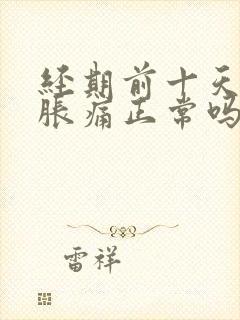 经期前十天
胀痛正常吗
雷祥